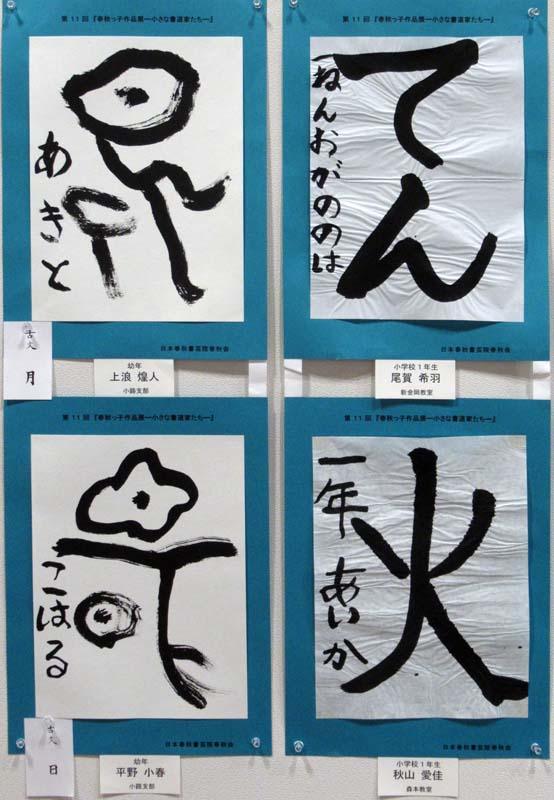 第11回『春秋っ子作品展ー小さな書道家たちー』
あきと
日本春秋書芸院春秋会
古文
月
幼年
上浪 煌人
小路支部
第11回『春秋っ子作品展ー小さな書道家たちー』
てん
一ねんおがののは
日本春秋書芸院春秋会
小学校1年生
尾賀 希羽
新金岡教室
第11回『春秋っ子作品展ー小さな書道家たちー』
こはる
日本春秋書芸院春秋会
古文
日
幼年
平野 小春
小路支部
第11回『春秋っ子作品展ー小さな書道家たちー』
火
一年 あいか
日本春秋書芸院春秋会
小学校1年生
秋山 愛佳
森本教室